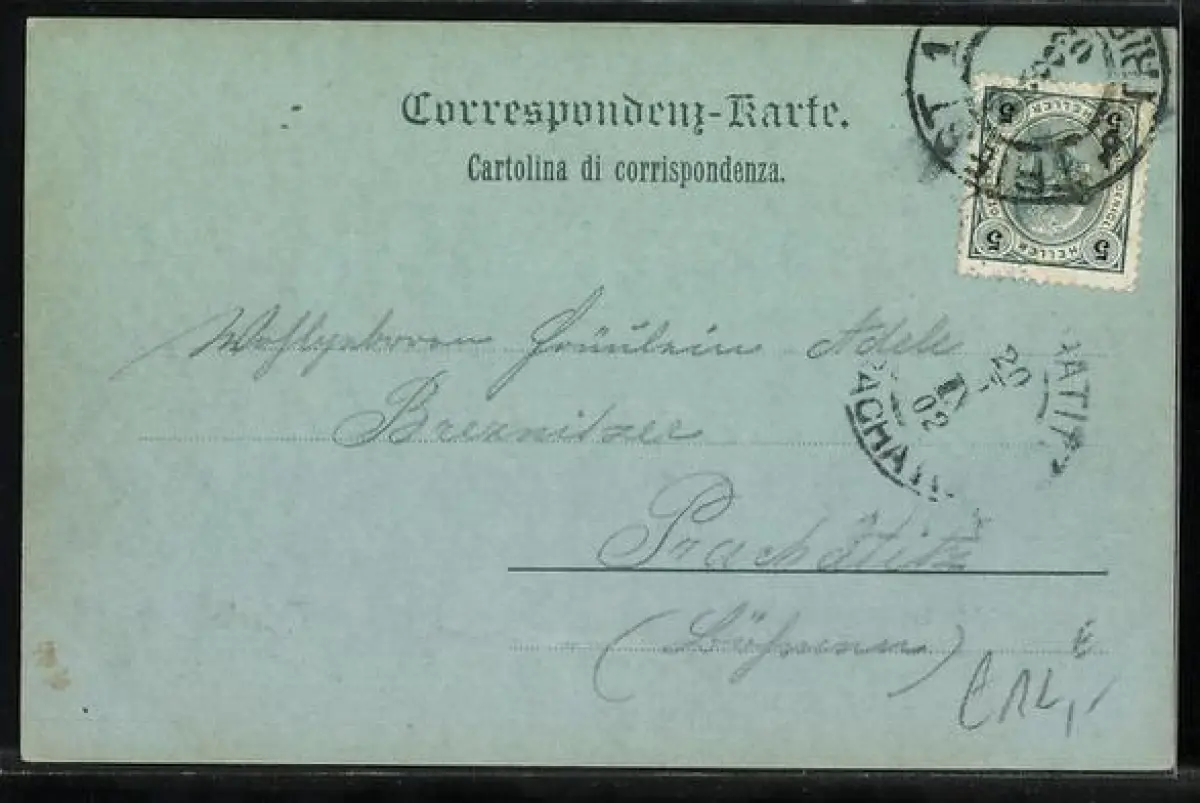 Correspondenz-Karte.
Cartolina di corrispondenza.
5 HELLER 5
5 HELLER 5
Wohlgeboren Fräulein Adele
Breznitzer
20
1
02
Prachatitz
(Böhmen)